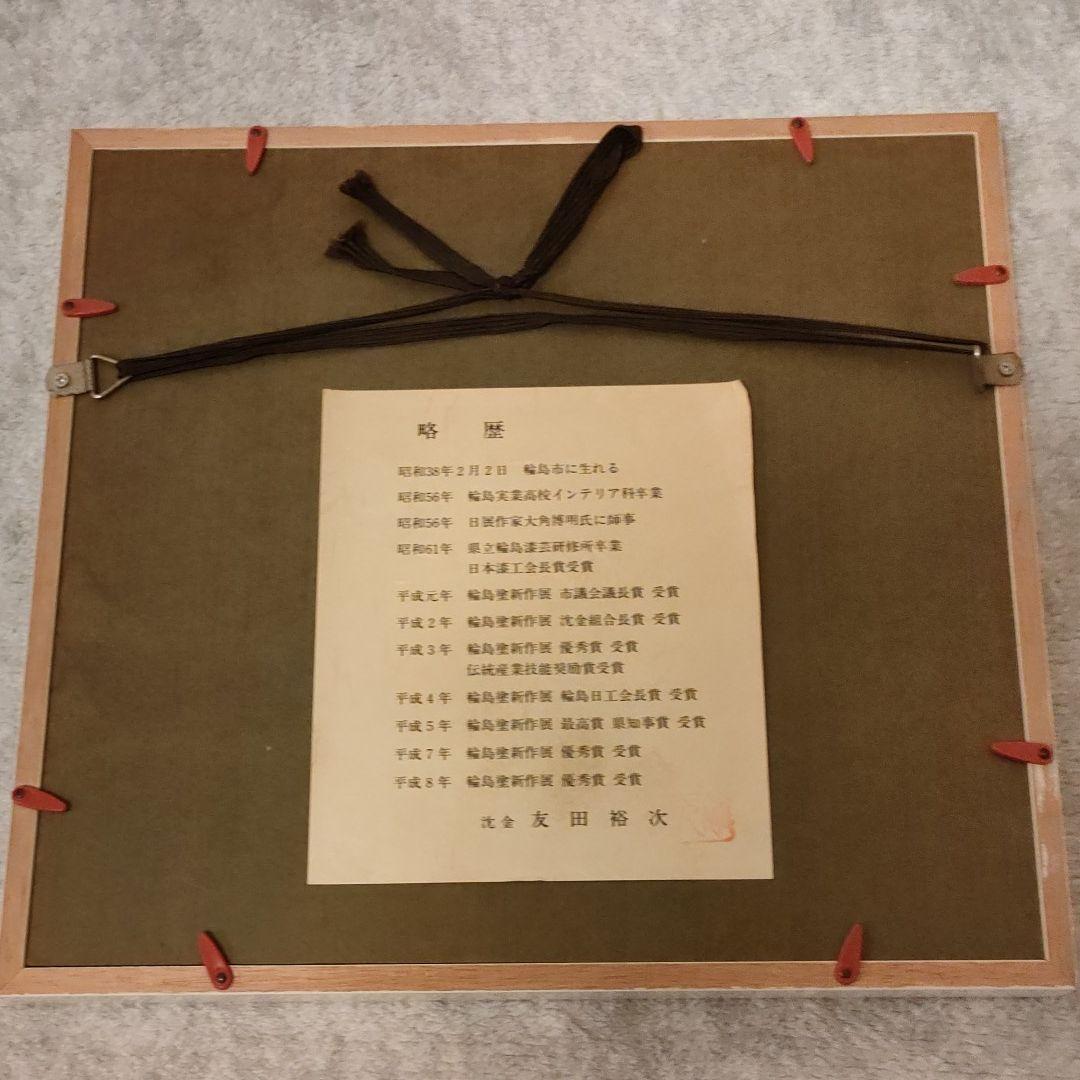 略 歴
昭和38年2月2日 輪島市に生れる
昭和56年 輪島実業高校インテリア科卒業
昭和56年 日展作家大角博明氏に師事
昭和61年 県立輪島漆芸研修所卒業
日本漆工会長賞受賞
平成元年 輪島塗新作展 市議会議長賞 受賞
平成2年 輪島塗新作展 沈金組合長賞 受賞
平成3年 輪島塗新作展 優秀賞 受賞
伝統産業技能奨励賞受賞
平成4年 輪島塗新作展 輪島日工会長賞 受賞
平成5年 輪島塗新作展 最高賞 県知事賞 受賞
平成7年 輪島塗新作展 優秀賞 受賞
平成8年 輪島塗新作展 優秀賞 受賞
沈金 友田裕次